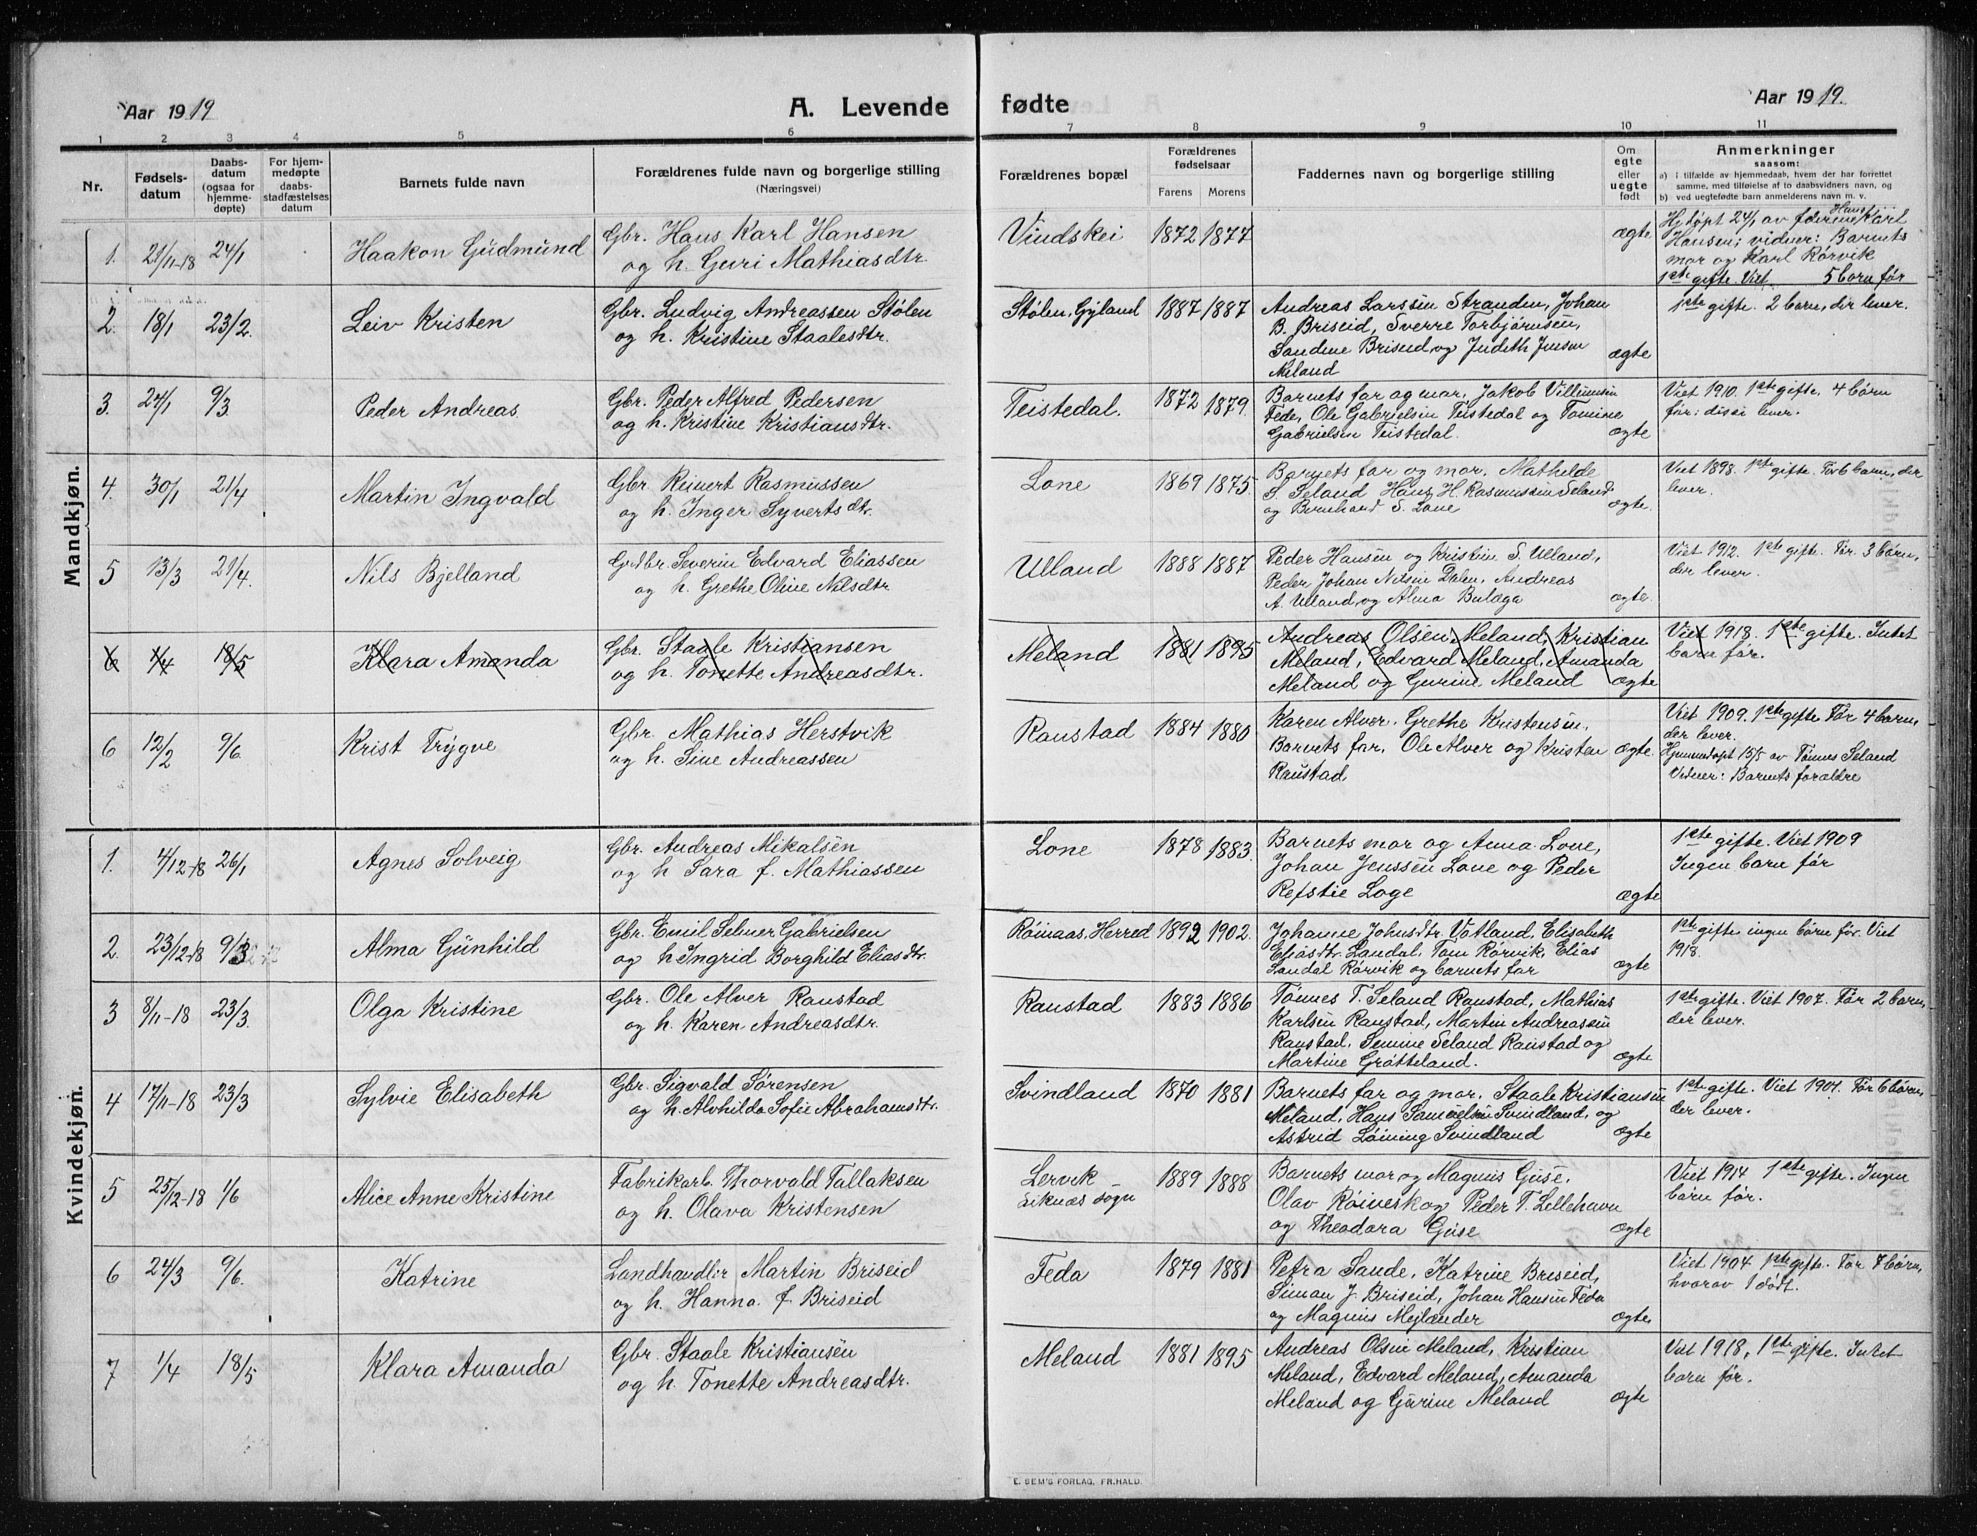 Aar 1919
A. Levende
fødte
Aar 1919.
1 2 3 4 5 6 7 8 9 10 11
Nr.
Fødsels-
datum
Daabs-
datum
(ogsaa for
hjemme-
døpte)
For hjem-
medøpte
daabs-
stadfæstelses
datum
Barnets fulde navn
Forældrenes fulde navn og borgerlige stilling
(Næringsvei)
Forældrenes bopæl
Forældrenes
fødselsaar
Farens Morens
Faddernes navn og borgerlige stilling
Om
egte
eller
uegte
født
Anmerkninger
saasom:
a) i tilfælde av hjemmedaab, hvem der har forrettet
samme, med tilføielse af to daabsvidners navn, og
b) ved uegtefødte barn anmelderens navn m. v.
Mandkjøn.
1. 21/11-18 24/1 Haakon Gudmund
Gbr. Hans Karl Hansen
og h. Guri Mathiasdtr.
Vindskei 1872 1877
ægte
Hj.døpt 24/1 av faderen Hans Karl
Hansen; vidner: Barnets
mor og Karl Rørvik
1ste gifte. Viet 5 børn før
2. 18/1 23/2. Leiv Kristen
Gbr. Ludvig Andreassen Stølen
og h. Kristine Staalesdtr.
Stølen, Gyland 1887 1887
Andreas Larssen Stranden, Johan
B. Briseid, Sverre Torbjørnsen,
Sandine Briseid, og Judith Jensen
Meland
ægte
1ste gifte. 2 barn, der lever.
3. 24/1 9/3. Peder Andreas
Gbr. Peder Alfred Pedersen
og h. Kristine Kristiansdtr.
Teistedal. 1872 1879
Barnets far og mor, Jakob Villumsen
Fede, Ole Gabrielsen Teistedal og Tomine
Gabrielsen Teistedal.
ægte
Viet 1910. 1ste gifte, 4 børn
før: disse lever.
4. 30/1 21/4 Martin Ingvald
Gbr. Reinert Rasmussen
og h. Inger Syvertsdtr.
Lone 1869 1875
Barnets far og mor, Mathilde
S. Seland Hans H. Rasmussen Seland
og Bernhard S. Lone
ægte.
Viet 1898. 1ste gifte. Før 6 barn, der
lever.
5 13/3 21/4. Nils Bjelland
Grdbr. Severin Edvard Eliassen
og h. Grethe Oline Nilsdtr.
Ulland 1888 1887
Peder Hansen og Kristine S. Ulland,
Peder Johan Nilsen Dalen, Andreas
A. Ulland, og Alma Bulæga
ægte.
Viet 1912. 1ste gifte. Før 3 børn,
der lever.
6 1/4 18/5 Klara Amanda
Gbr. Staale Kristiansen
og h. Tonette Andreasdtr.
Meland 1881 1895
Andreas Olsen Meland, Kristian
Meland, Edvard Meland, Amanda
Meland og Gurine Meland
ægte
Viet 1918. 1ste gifte. Intet
barn før.
6 12/2 9/6. Krist Trygve
Gbr. Mathias Herstvik
og h. Sine Andreassen
Raustad 1884 1880
Karen Alver. Grethe Kristensen,
Barnets far, Ole Alver og Kristen
Raustad
ægte.
Viet 1909. 1ste gifte Før 4 barn,
der lever.
Hjemmedøpt 15/5 av Tønnes Seland
Vidner: Barnets forældre
Kvindekjøn.
1. 4/12-18 26/1 Agnes Solveig
Gbr. Andreas Mikalsen
og h Sara f. Mathiassen
Lone 1878 1883.
Barnets mor og Anna Lone,
Johan Jenssen Lone og Peder
Refstie Loge
ægte
1ste gifte. Viet 1909
Ingen barn før
2. 23/12-18 9/3 Alma Gunhild
Gbr. Emil Selmer Gabrielsen
og h Ingrid Borghild Eliasdtr.
Røinaas. Herred 1892 1902.
Johanne Johnsdtr. Vatland, Elisabeth
Eliasdtr. Landal, Tom Rørvik, Elias
Landal Rørvik og barnets far
ægte
1ste gifte ingen børn før. Viet
1918.
3 8/11-18 23/3. Olga Kristine
Gbr. Ole Alver Raustad
og h. Karen Andreasdtr.
Raustad 1883 1886
Tønnes T. Seland Raustad, Mathias
Karlsen Raustad, Martin Andreassen
Raustad, Semine Seland Raustad og
Martine Grøtteland.
ægte
1ste gifte. Viet 1907. Før 2 barn,
der lever.
4 17/11-18 23/3 Sylvie Elisabeth
Gbr. Sigvald Sørensen
og h. Alvhilda Sofie Abrahamsdtr.
Svindland 1870 1881
Barnets far og mor. Staale Kristiansen
Meland, Hans Samuelsen Svindland, og
Astrid Løining Svindland
ægte
1ste gifte. Viet 1904. Før 6 børn,
der lever.
5 25/12-18 1/6 Alice Anne Kristine
Fabrikarb. Thorvald Tallaksen
og h. Olava Kristensen
Lervik
Liknæs sogn
1889 1888
Barnets mor og Magnus Guse.
Olav Røiveskog Peder T. Lellehavn
og Theodora Guse
ægte
Viet 1914 1ste gifte. Ingen
børn før.
6 24/3 9/6. Katrine
Landhandler Martin Briseid
og h. Hanna f. Briseid
Feda 1879 1881
Petra Sande, Katrine Briseid,
Simon J. Briseid, Johan Hansen Feda
og Magnus Mejlænder
ægte
Viet 1904 1ste gifte. Før 7 børn,
hvorav 1 død.
7 1/4 18/5 Klara Amanda
Gbr. Staale Kristiansen
og h. Tonette Andreasdtr.
Meland 1881 1895
Andreas Olsen Meland, Kristian
Meland, Edvard Meland, Amanda
Meland og Gurine Meland
ægte
Viet 1918, 1ste gifte. Intet
barn før.
E. SEM'S FORLAG, FR.HALD.